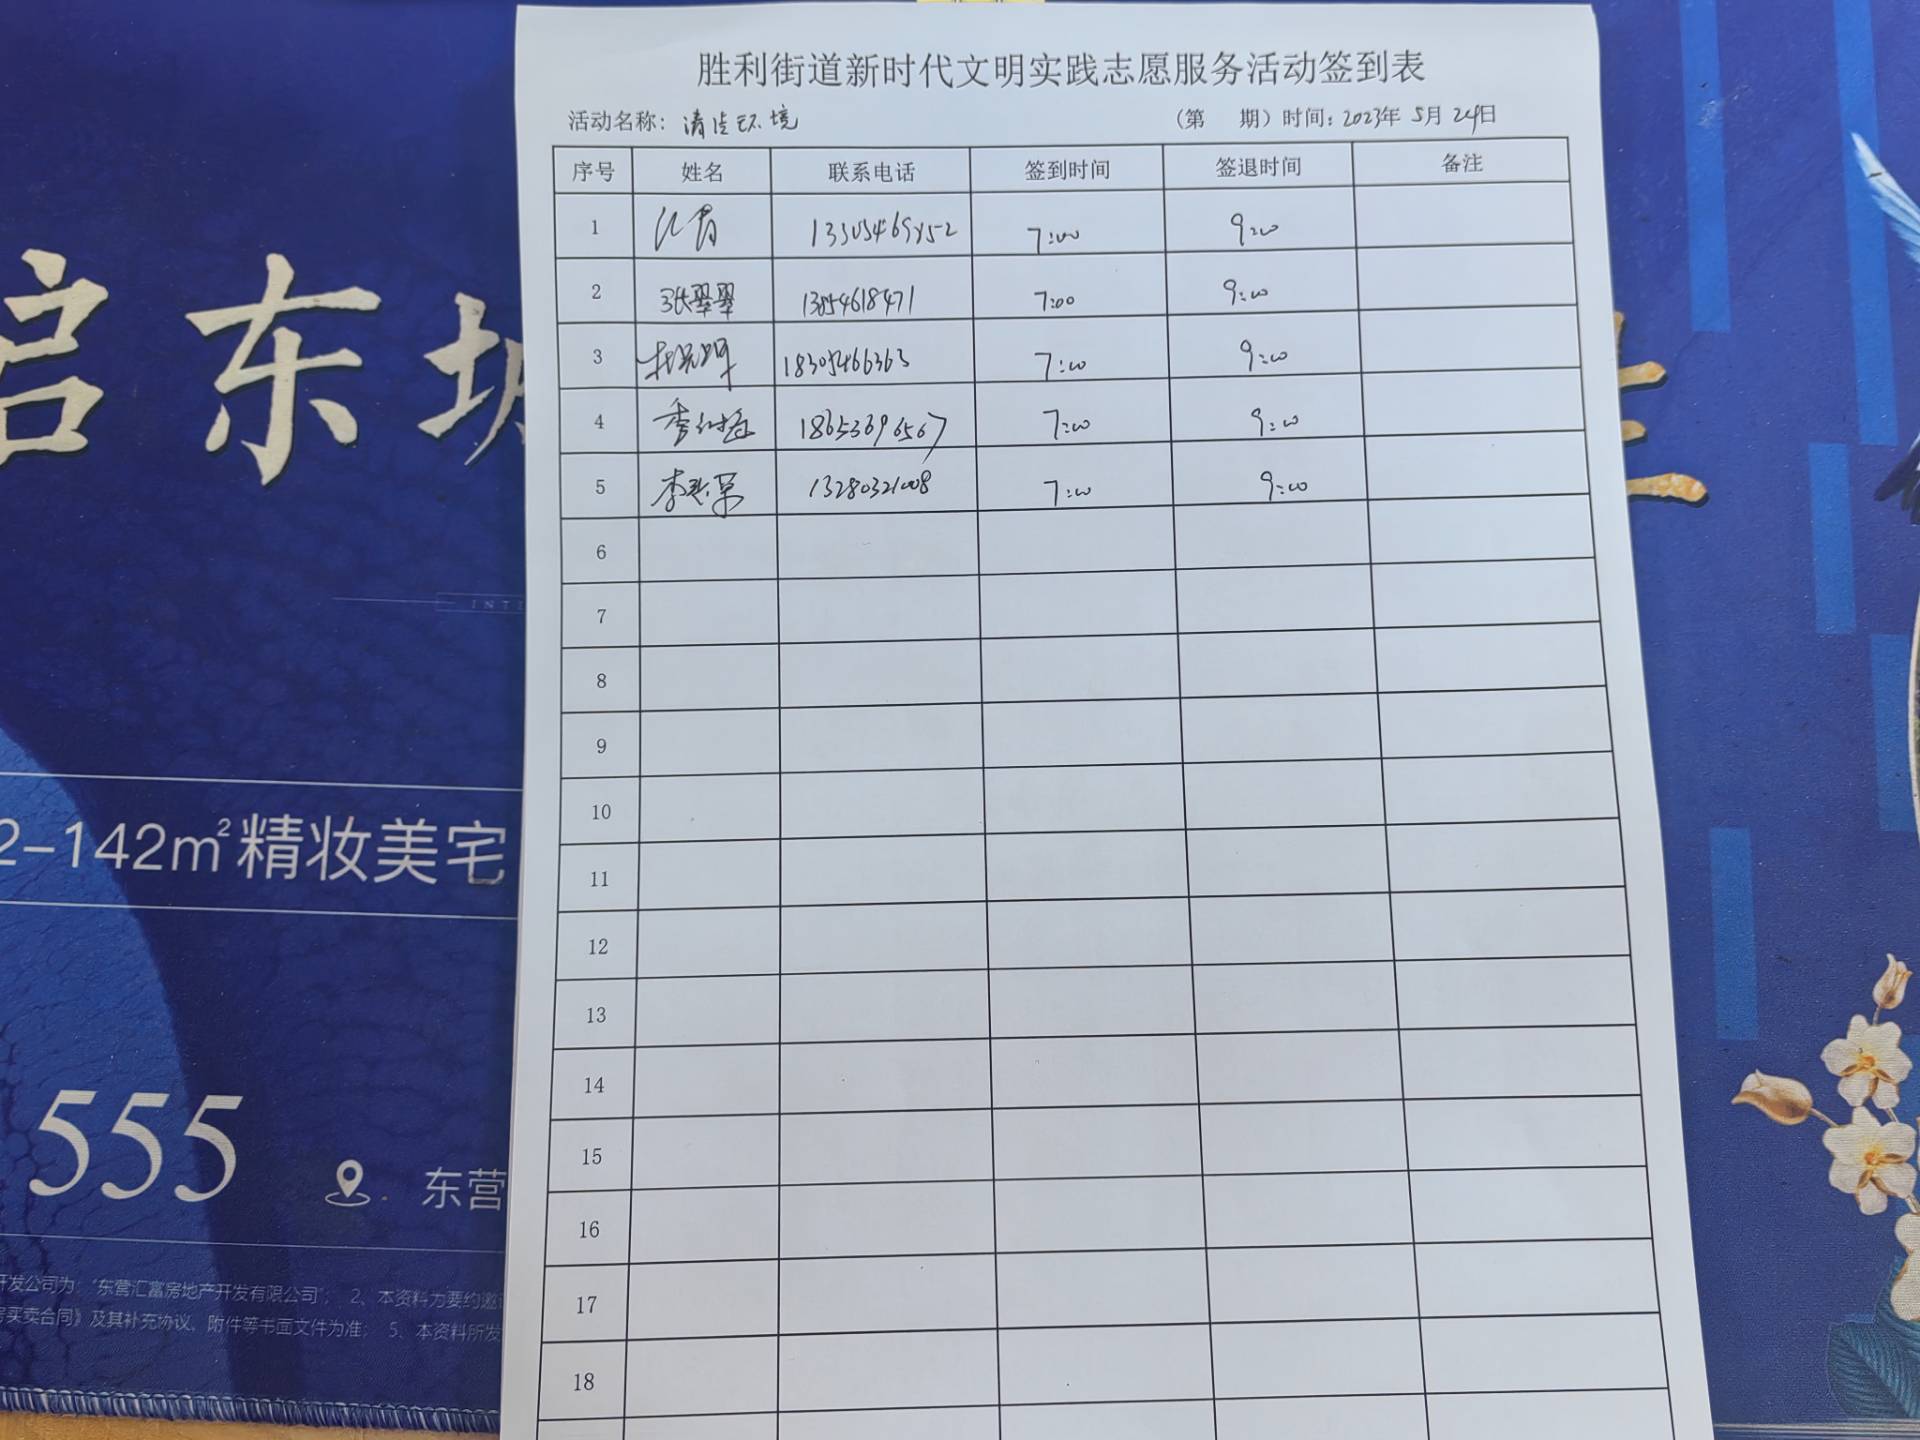 胜利街道新时代文明实践志愿服务活动签到表
活动名称：清洁环境 （第 期）时间：2023年 5月 24日
序号 姓名 联系电话 签到时间 签退时间 备注
1 7:00 9:00
2 张翠翠 13854618471 7:00 9:00
3 18305466363 7:00 9:00
4 18653696567 7:00 9:00
5 13280321008 7:00 9:00
6
7
8
9
10
11
12
13
14
15
16
17
18
启东城
INTE
2-142㎡精妆美宅
555
东营
开发公司为："东营汇富房地产开发有限公司"； 2、本资料为要约邀
房买卖合同》及其补充协议、附件等书面文件为准； 5、本资料所发